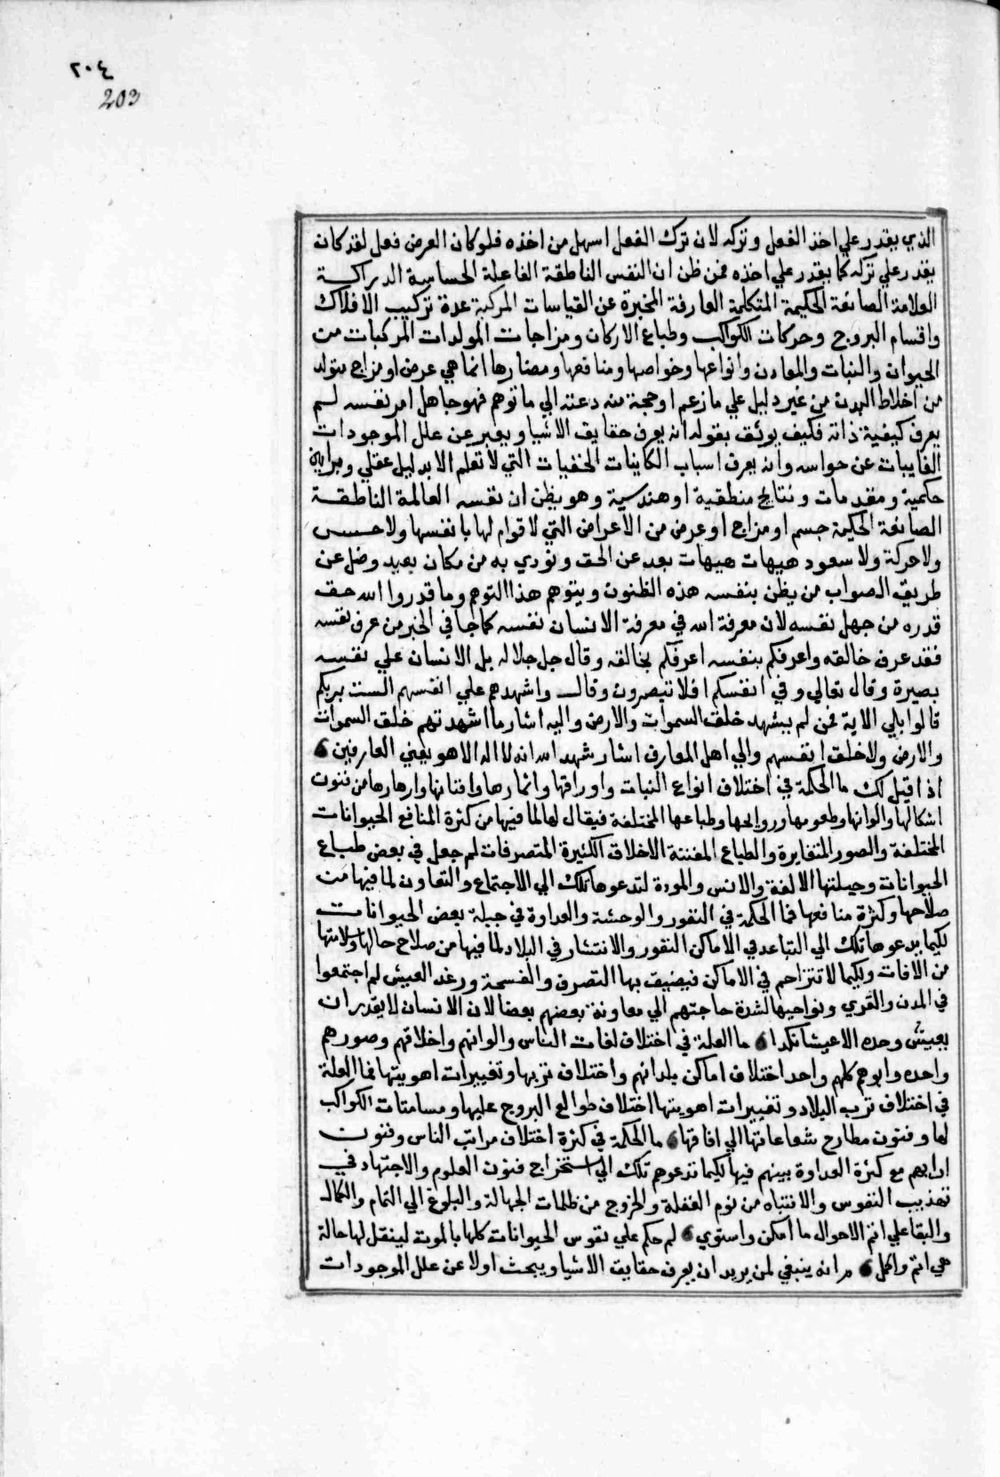 ٢٠٤
203
الذي يقدر علي اخذ الفعل وتركه لان ترك الفعل اسهل من اخذه فلو كان العرض فعل لقد كان
يقدر علي تركه كما يقدر علي اخذه فمن ظن ان النفس الناطقة الفاعلة الحساسة الدراكة
العلامة الصانعة الحكيمة المتكلمة العارفة المخبرة عن القياسات المركبة عدة تركيب الافلاك
واقسام البروج وحركات الكواكب وطباع الاركان ومزاجات المولدات المركبات من
الحيوان والنبات والمعادن وانواعها وخواصها ومنافعها ومضارها انما هي عرض او مزاج يتولد
من اخلاط البدن من غير دليل علي ما زعم او حجة منه دعته الي ما توهم فهو جاهل امر نفسه لم
يعرف كيفية ذاته فكيف يوثق بقوله انه يعرف حقايق الاشيا ويعبر عن علل الموجودات
الغايبات عن حواسه وانه يعرف اسباب الكاينات الخفيات التي لا تعلم الا بدليل عقلي وبراهين
حكمية ومقدمات ونتايج منطقية او هندسية وهو يظن ان نفسه العالمة الناطقة
الصانعة الحكيمة جسم او مزاج او عرض من الاعراض التي لا قوام لها بانفسها ولا حس
ولا حركة ولا سعود هيهات هيهات بعد عن الحق ونودي به من مكان بعيد وضل عن
طريق الصواب من يظن بنفسه هذه الظنون ويتوهم هذا التوهم وما قدروا الله حق
قدره من جهل نفسه لان معرفة الله في معرفة الانسان نفسه كما جا في الخبر من عرف نفسه
فقد عرف خالقه واعرفكم بنفسه اعرفكم بخالقه وقال جل جلاله بل الانسان علي نفسه
بصيرة وقال تعالي وفي انفسكم افلا تبصرون وقال واشهدهم علي انفسهم الست بربكم
قالوا بلي الاية فمن لم يشهد خلق السموات والارض واليه اشار ما اشهدتهم خلق السموات
والارض ولا خلق انفسهم والي اهل المعارف اشار شهد الله انه لا اله الا هو يعني العارفين
اذا قيل لك ما الحكمة في اختلاف انواع النبات واوراقها واثمارها وافنانها وازهارها من فنون
اشكالها والوانها وطعومها وروايحها وطباعها المختلفة فيقال لها لما فيها من كثرة المنافع الحيوانات
المختلفة والصور المتغايرة والطباع المفننة الاخلاق الكثيرة المتصرفات لم جعل في بعض طباع
الحيوانات وجبلتها الالفة والانس والمودة لتدعوها تلك الي الاجتماع والتعاون لما فيها من
صلاحها وكثرة منافعها فما الحكمة في النفور والوحشة والعداوة في جبلة بعض الحيوانات
لكيما يدعوها تلك الي التباعد في الاماكن النفور والانتشار في البلاد لما فيها من صلاح حالها وسلامتها
من الافات ولكيما لا تتزاحم في الاماكن فيضيق بها التصرف والفسحة ورغد العيش لم اجتمعوا
في المدن والقري ونواحيها لشدة حاجتهم الي معاونة بعضهم بعضا لان الانسان لا يقدر ان
يعيش وحده الا عيشا نكدا ما العلة في اختلاف لغات الناس والوانهم واخلاقهم وصورهم
واحده وابوهم كلهم واحد اختلاف اماكن بلدانهم واختلاف تربها وتغييرات اهويتها فما العلة
في اختلاف ترب البلاد وتغييرات اهويتها اختلاف طوالع البروج عليها ومسامتات الكواكب
لها وفنون مطارح شعاعاتها الي افاقها ما الحكمة في كثرة اختلاف مراتب الناس وفنون
ارايهم مع كثرة العداوة بينهم فيها لكيما تدعوهم تلك الي استخراج فنون العلوم والاجتهاد في
تهذيب النفوس والانتباه من نوم الغفلة والخروج من ظلمات الجهالة والبلوغ الي التمام والكمال
والبقا علي اتم الاحوال ما امكن واستوي لم حكم علي نفوس الحيوانات كلها بالموت لينقل لها حالة
هي اتم واكمل انه ينبغي لمن يريد ان يعرف حقايق الاشيا ويبحث اولا عن علل الموجودات